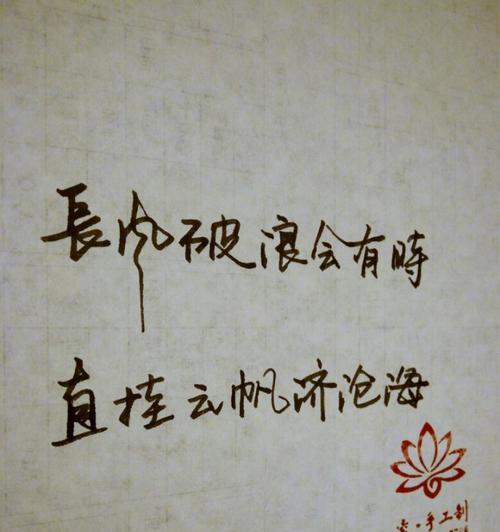 長风破浪会有時
直挂云帆济沧海
手工制